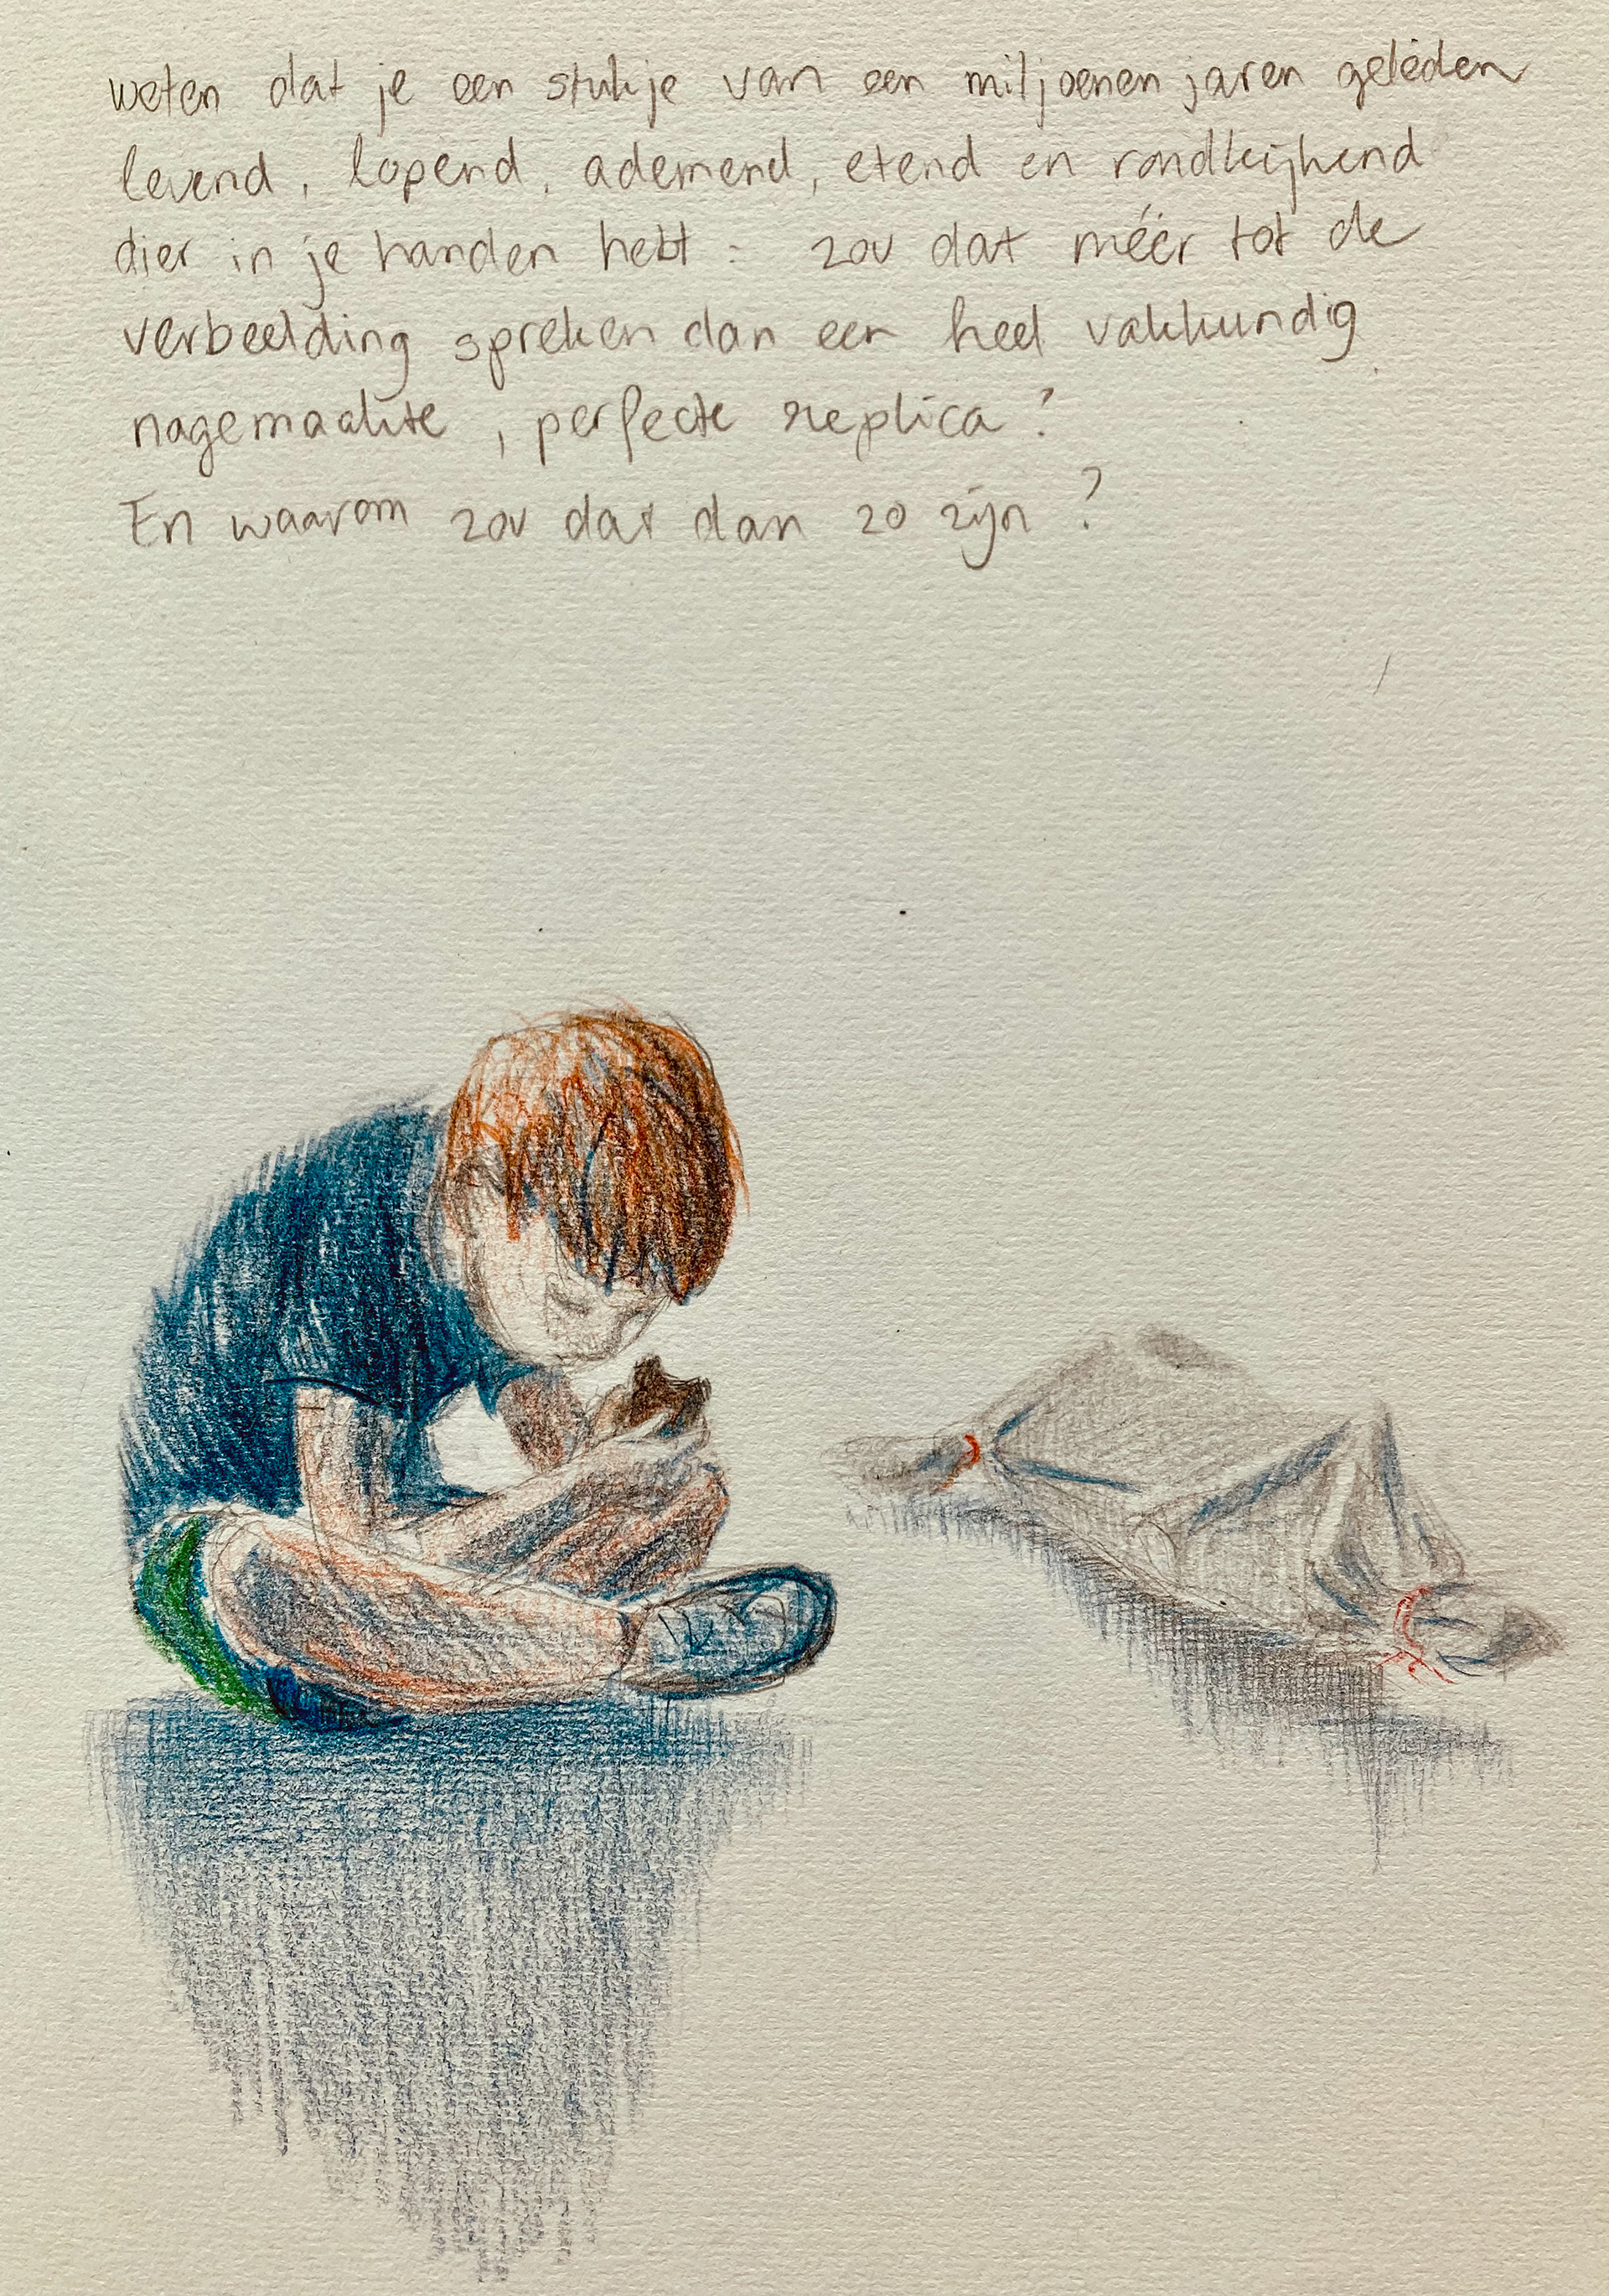 weten dat je een stukje van een miljoenen jaren geleden
levend, lopend, ademend, etend en rondkijkend
dier in je handen hebt : zou dat méér tot de
verbeelding spreken dan een heel vakkundig
nagemaakte, perfecte replica?
En waarom zou dat dan zo zijn?